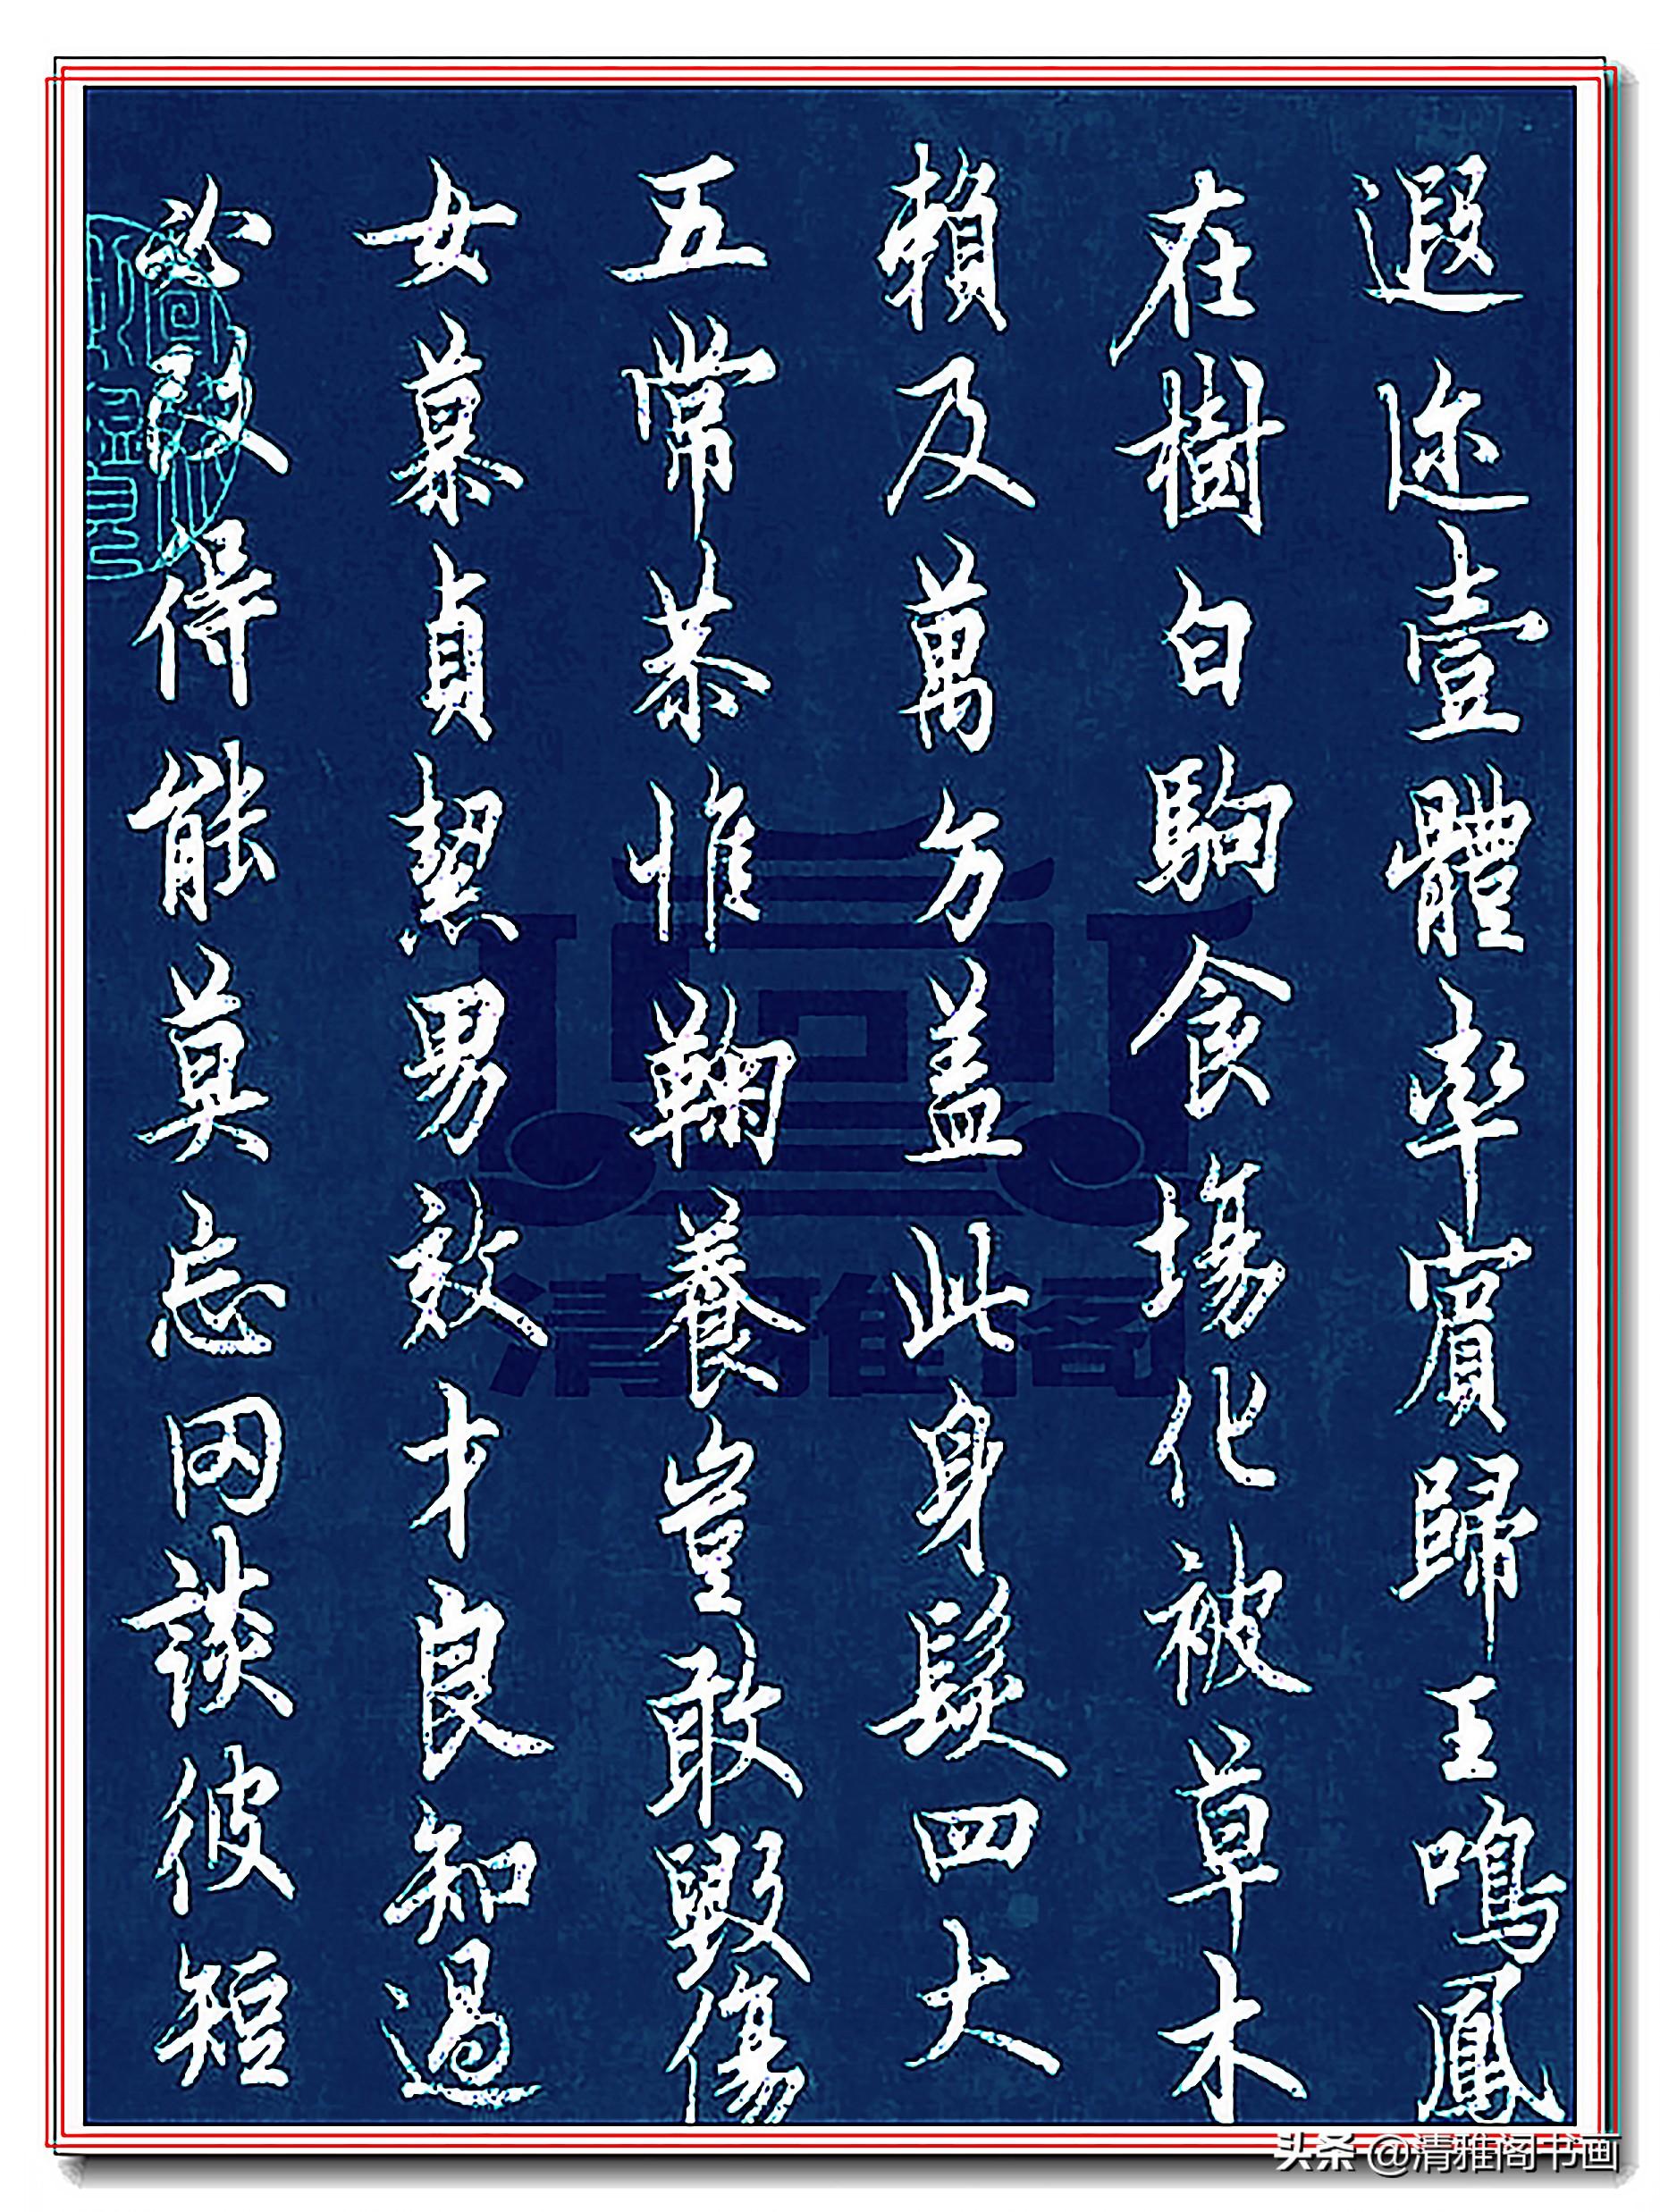 遐迩壹體率賓歸王鳴鳳
在樹白駒食場化被草木
賴及萬方盖此身髮四大
五常恭惟鞠養豈敢毀傷
女慕貞絜男效才良知過
必改得能莫忘罔談彼短
清雅阁
头条 @清雅阁书画